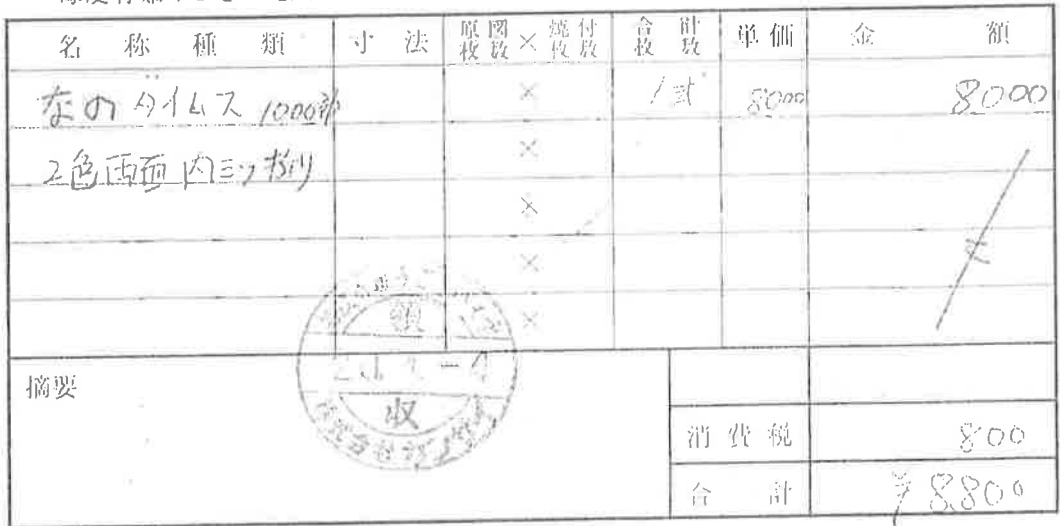 名称種類 寸法 原図枚数 × 焼付枚数 合計枚数 単価 金額
なのタイムス 1000部 × 1式 8000 8000
2色両面 内三ッ折り ×
×
×
×
領
収
摘要
消費税 800
合計 ¥8800